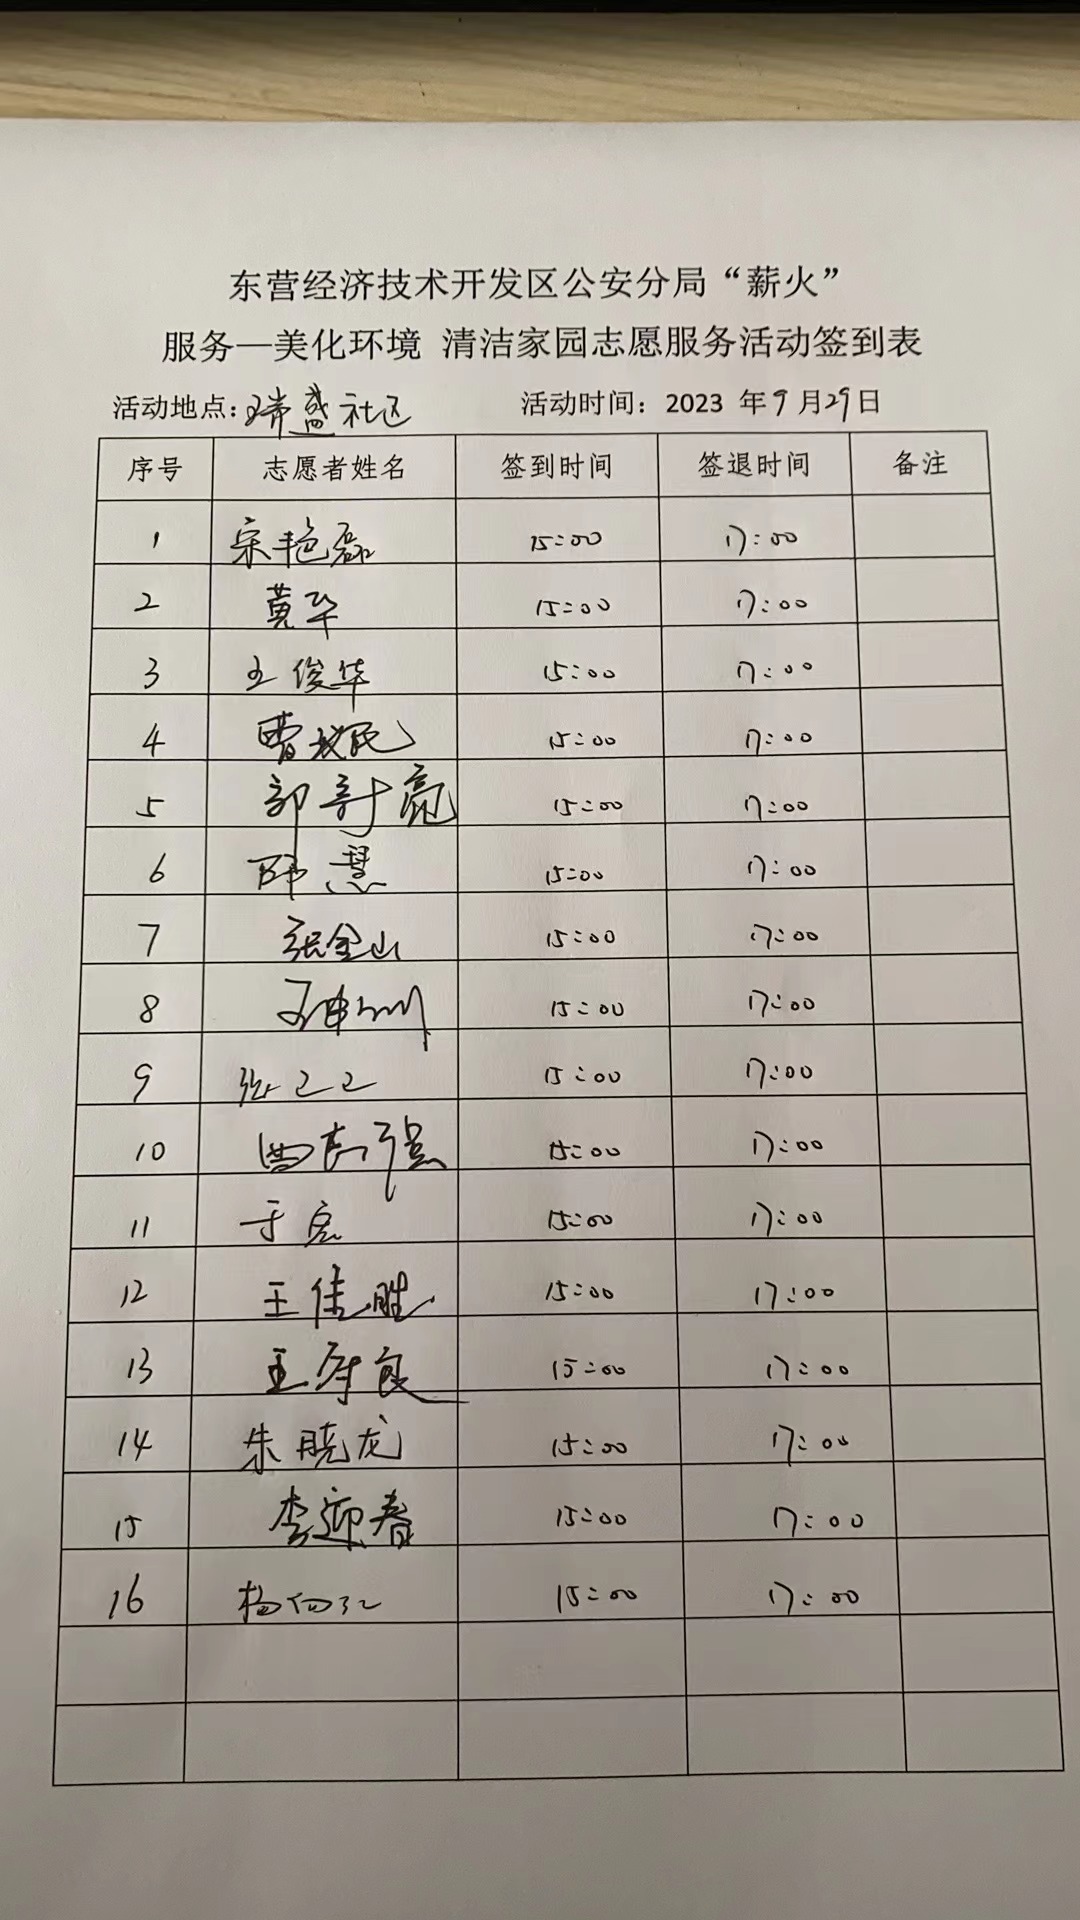 东营经济技术开发区公安分局“薪火”
服务—美化环境 清洁家园志愿服务活动签到表
活动地点:瑞盛社区 活动时间: 2023 年9月29日
序号 志愿者姓名 签到时间 签退时间 备注
1 宋艳磊 15:00 17:00
2 黄华 15:00 17:00
3 王俊华 15:00 17:00
4 曹 15:00 17:00
5 郭 亮 15:00 17:00
6 慧 15:00 17:00
7 张金山 15:00 17:00
8 15:00 17:00
9 张 15:00 17:00
10 强 15:00 17:00
11 于宏 15:00 17:00
12 王佳胜 15:00 17:00
13 王 良 15:00 17:00
14 朱晓龙 15:00 17:00
15 李迎春 15:00 17:00
16 杨 15:00 17:00